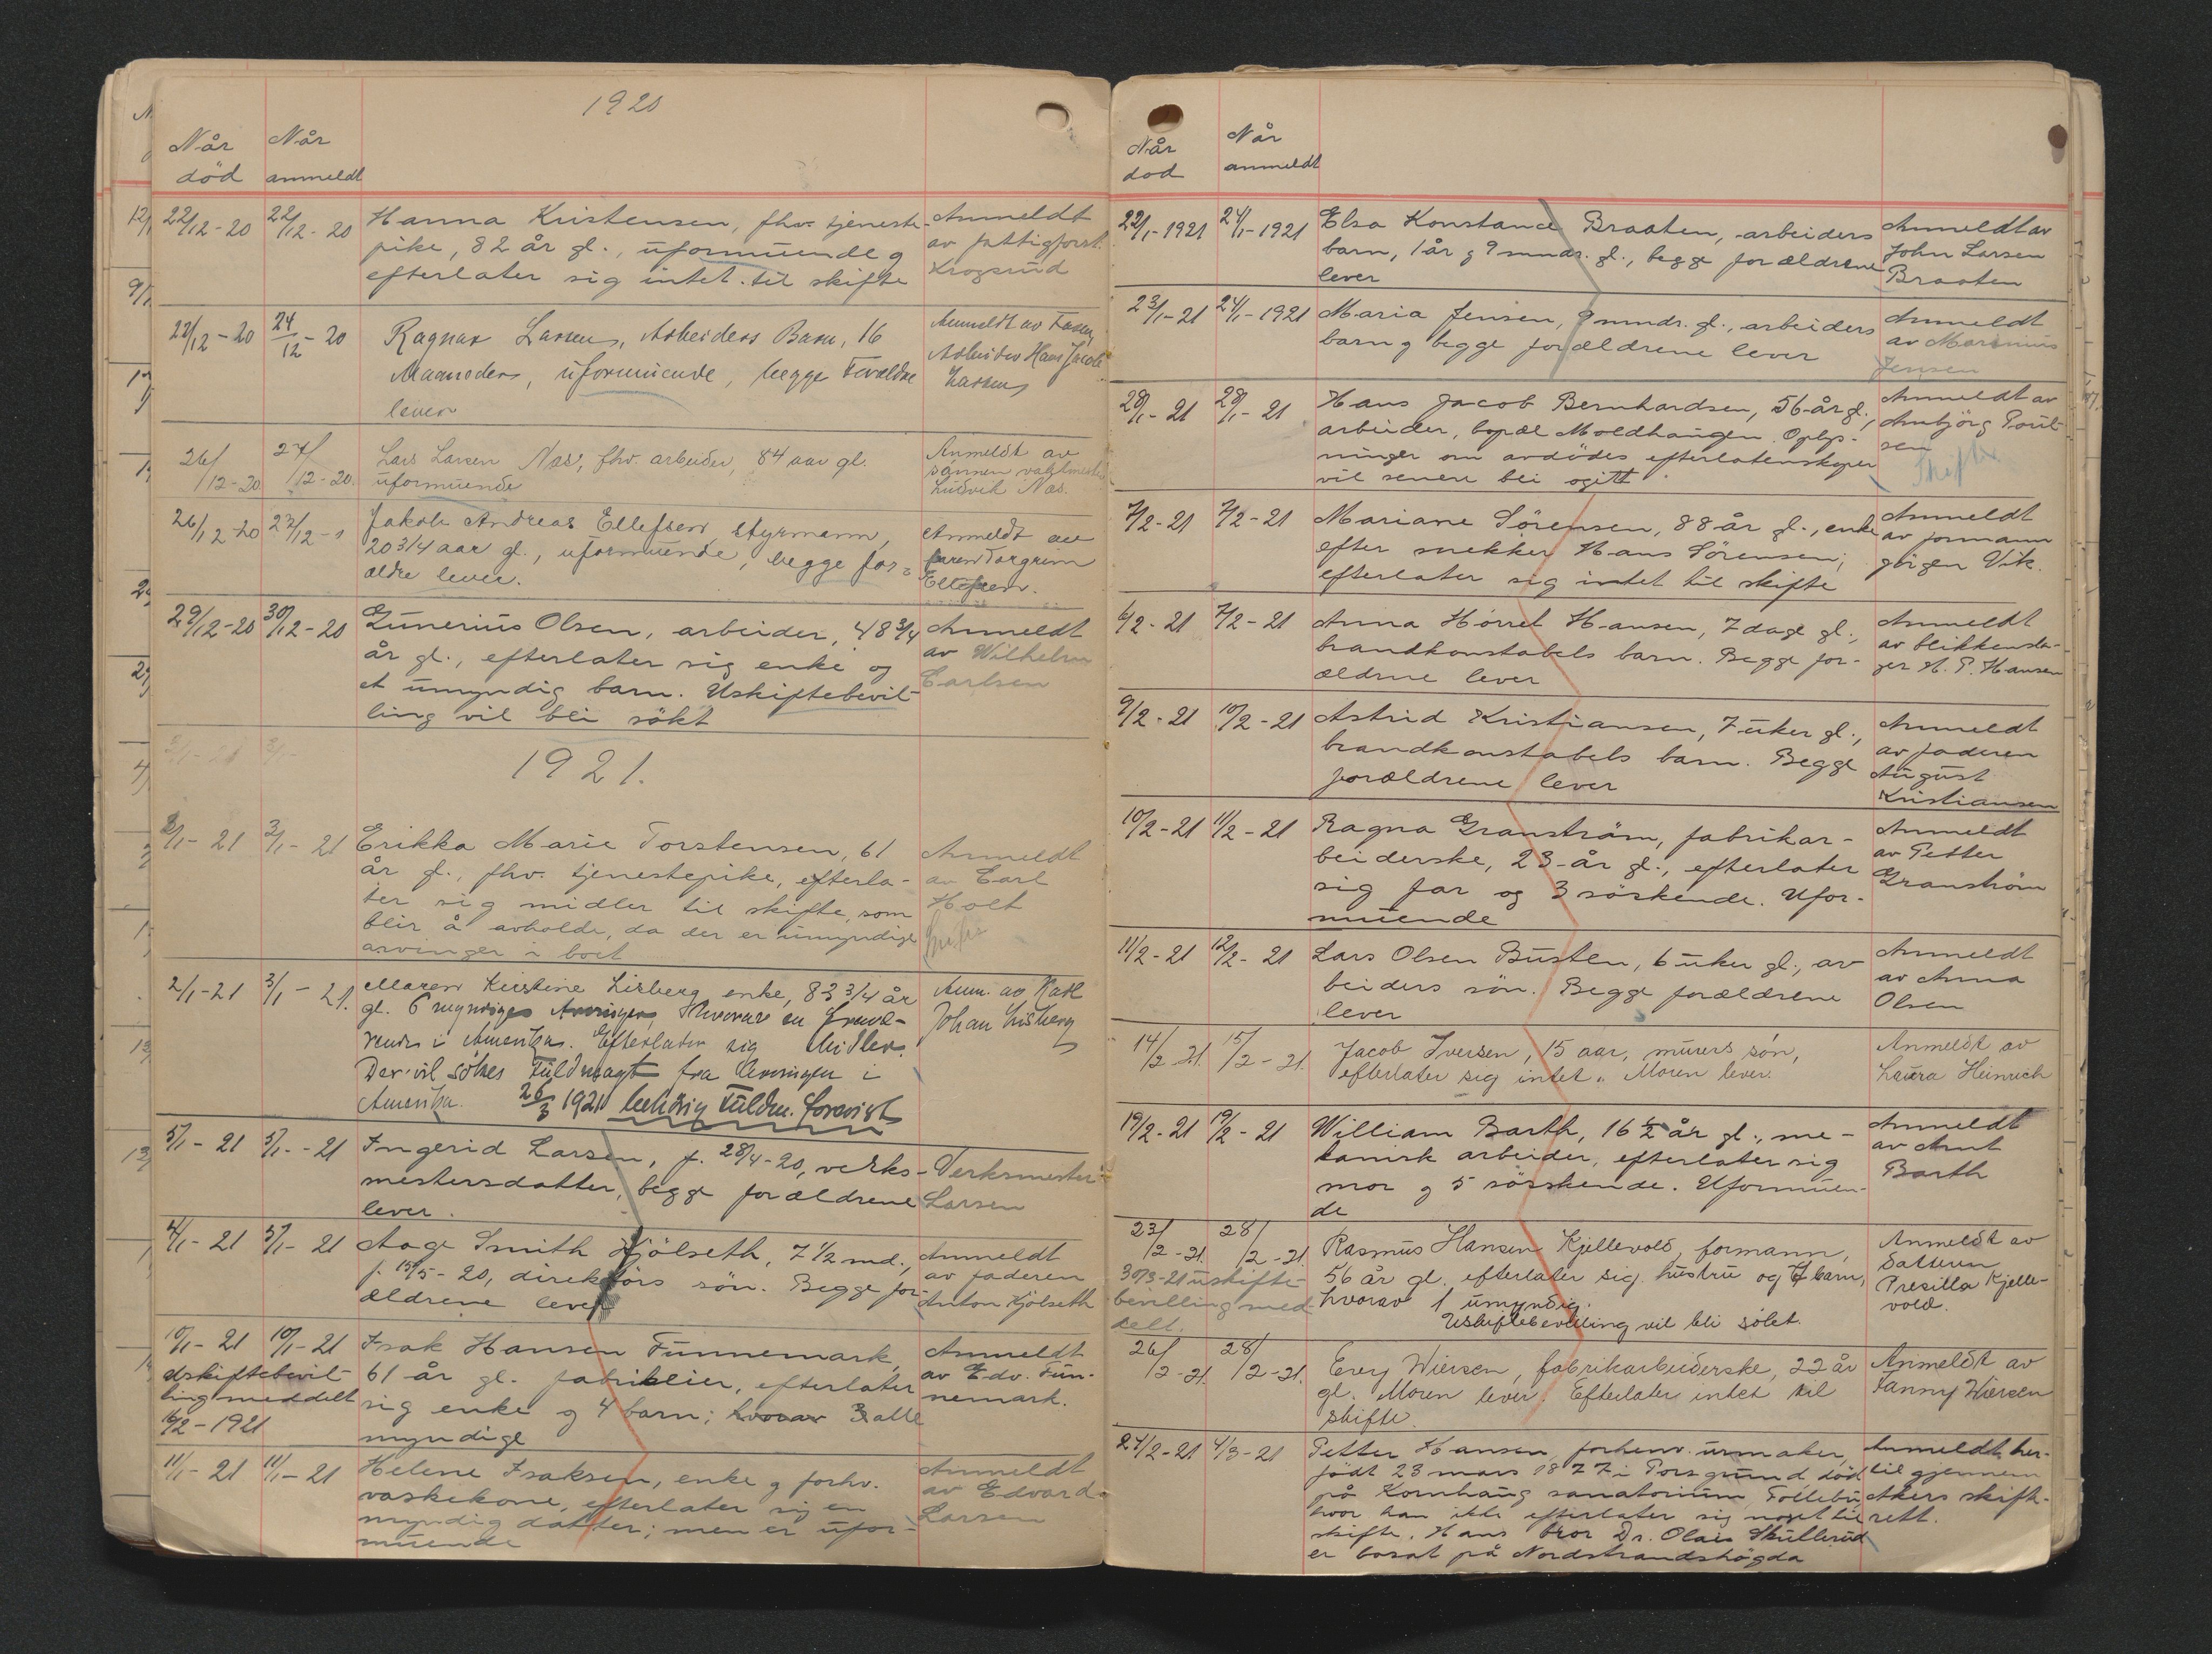 1920
Når død
Når anmeldt
22/12-20 22/12-20 Hanna Kristensen, fhv. tjeneste-
pike, 82 år gl., uformuende og
efterlater sig intet til skifte
Anmeldt
av fattigforst.
Krogsrud
22/12-20 24/12-20 Ragnar Larsen, Arbeiders Barn, 16
Maaneder, uformuende, begge Forældre
lever
Anmeldt av Faren,
Arbeider Hans Jacob
Larsen
26/12-20 27/12-20 Lars Larsen Næs, fhv. arbeider, 84 aar gl.
uformuende
Anmeldt av
sønnen vagtmester
Ludvik Næs.
26/12-20 27/12- Jakob Andreas Ellefsen, styrmann,
20 3/4 aar gl., uformuende, begge for-
ældre lever.
Anmeldt av
faren Torgrim
Ellefsen.
29/12-20 30/12-20 Gunerius Olsen, arbeider, 48 3/4
år gl., efterlater sig enke og
et umyndig barn. Uskiftebevil-
ling vil bli søkt
Anmeldt
av Wilhelm
Carlsen
1921.
2/1-21 3/1-21 Erikka Marie Torstensen, 61
år gl., fhv. tjenestepike, efterla-
ter sig midler til skifte, som
blir å avholde, da der er umyndige
arvinger i boet
Anmeldt
av Carl
Holt
2/1-21 3/1-21. Maren Kirstine Lisberg enke, 83 3/4 år
gl. 6 myndige Arvinger, hvorav en fravæ-
rende i Amerika. Efterlater sig Midler.
Der vil søkes Fuldmagt fra Arvingen i
Amerika. 26/3 1921 behørig Fuldm. forevist
Anm. av Karl
Johan Lisberg
5/1-21 5/1-21 Ingerid Larsen, f. 28/4-20, verks-
mestersdatter, begge forældrene
lever.
Verksmester
Larsen
4/1-21 5/1-21 Aage Smith Hjölseth, 7 1/2 md.,
f. 15/5-20, direktørs søn. Begge for-
ældrene lever
Anmeldt
av faderen
Anton Hjölseth
10/1-21 10/1-21 Isak Hansen Funnemark,
61 år gl. fabrikeier, efterlater
sig enke og 4 barn; hvorav 3 alle
myndige
Uskiftebevil-
ling meddelt
16/2-1921
Anmeldt
av Edv. Fun-
nemark.
11/1-21 11/1-21 Helene Isaksen, enke og forhv.
vaskekone, efterlater sig en
myndig datter; men er ufor-
muende
Anmeldt
av Edvard
Larsen
Når død
Når anmeldt
22/1-1921 24/1-1921 Elsa Konstance Braaten, arbeiders
barn, 1 år og 9 mndr. gl., begge forældrene
lever
Anmeldt av
John Larsen
Braaten
23/1-21 24/1-1921 Maria Jensen, 9 mndr. gl., arbeiders
barn og begge forældrene lever
Anmeldt
av Marinius
Jensen
28/1-21 28/1-21 Hans Jacob Bernhardsen, 56 år gl.,
arbeider, bopæl Moldhaugen. Oplys-
ninger om avdødes efterlatenskaper
vil senere bli ogitt
Anmeldt av
Anbjörg Poul-
sen
Skifte
7/2-21 7/2-21 Mariane Sörensen, 88 år gl., enke
efter snekker Hans Sörensen;
efterlater sig intet til skifte
Anmeldt
av formann
Jörgen Vik.
6/2-21 7/2-21 Anna Hörret Hansen, 7 dage gl.,
brandkonstabels barn. Begge for-
ældrene lever
Anmeldt
av blikkensla-
ger H. P. Hansen
9/2-21 10/2-21 Astrid Kristiansen, 7 uker gl.,
brandkonstabels barn. Begge
forældrene lever
Anmeldt
av faderen
August
Kristiansen
10/2-21 11/2-21 Ragna Granström, fabrikar-
beiderske, 23 år gl., efterlater
sig far og 3 söskende. Ufor-
muende
Anmeldt
av Petter
Granström
11/2-21 12/2-21 Lars Olsen Busten, 6 uker gl., ar-
beiders sön. Begge forældrene
lever
Anmeldt
av Anna
Olsen
14/2-21. 15/2-21. Jacob Iversen, 15 aar, murers søn,
efterlater sig intet. Moren lever.
Anmeldt av
Laura Heinrich
19/2-21 19/2-21 William Barth, 16 1/2 år gl., me-
kanisk arbeider, efterlater sig
mor og 5 söskende. Uformuen-
de
Anmeldt
av Arnt
Barth
23/2-21. 28/2-21. Rasmus Hansen Kjellevold, formann,
56 år gl. efterlater sig hustru og 7 barn,
hvorav 1 umyndig.
Uskiftebevilling vil bli søkt.
30/3-21 uskifte-
bevilling med-
delt.
Anmeldt av
Datteren
Presilla Kjelle-
vold.
26/2-21. 28/2-21. Evry Wiersen, fabrikarbeiderske, 22 år
gl. Moren lever. Efterlater intet til
skifte.
Anmeldt av
Fanny Wiersen
24/2-21 4/3-21 Petter Hansen, forhenv. urmaker,
född 23 mars 1877 i Porsgrund död
på Kornhaug sanatorium, Follebu
hvor han ikke efterlater sig noget til
skifte. Hans bror Dr. Olais Skullerud
er bosat på Nordstrandshögda
Anmeldt her-
til gjennem
Akers skifte-
rett.